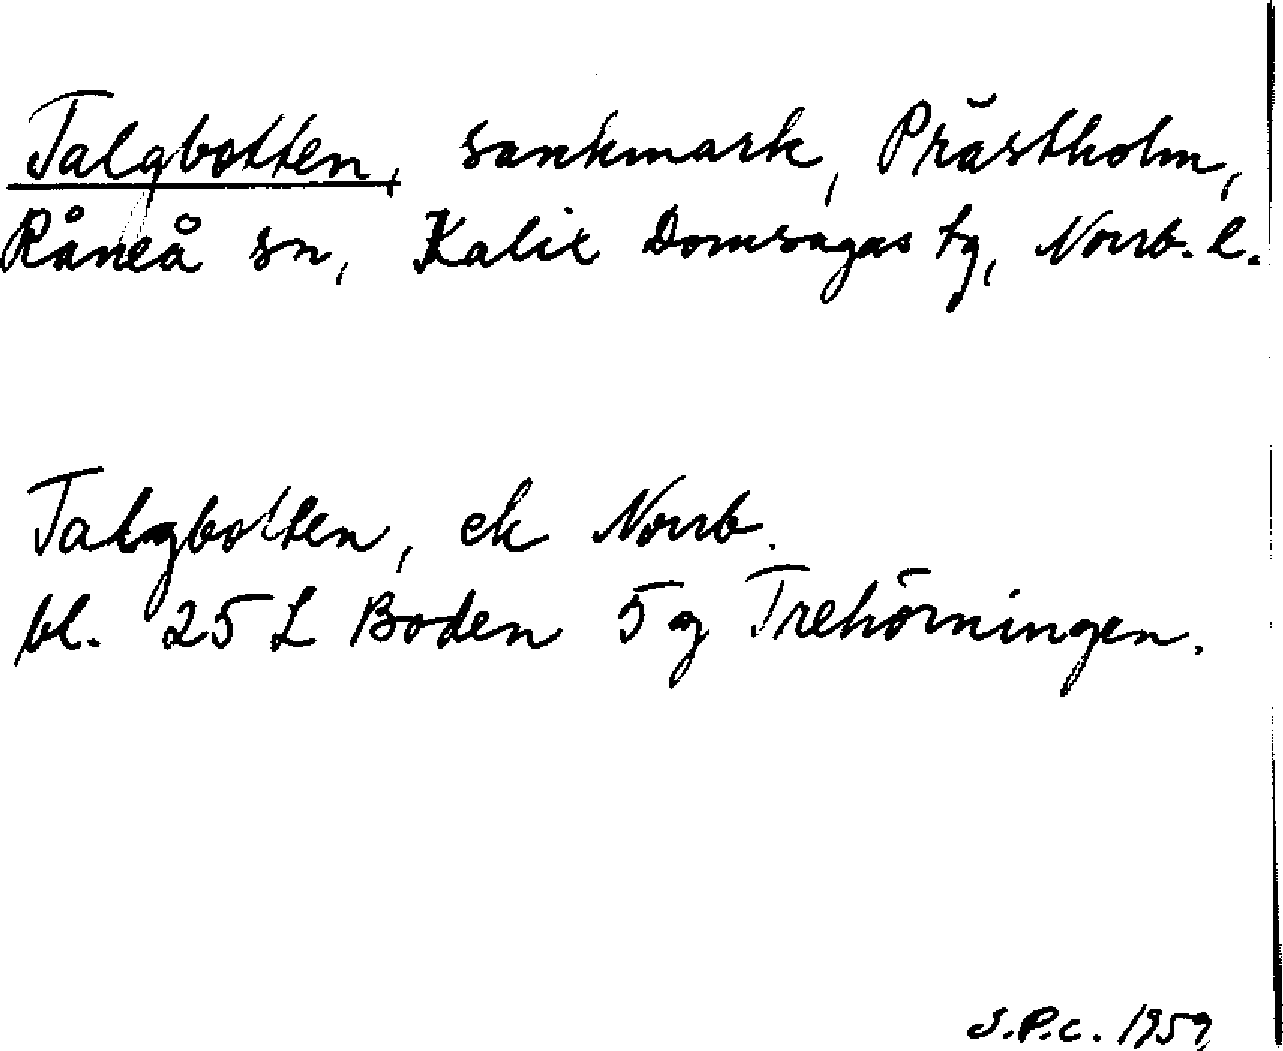 Talgbotten, sankmark, Prästholm,
Råneå sn, Kalix Domsagas tg, Norrb. l.
Talgbotten, ek Norrb.
bl. 25 L Boden 5 g Trehörningen.
S.P.C. 1959